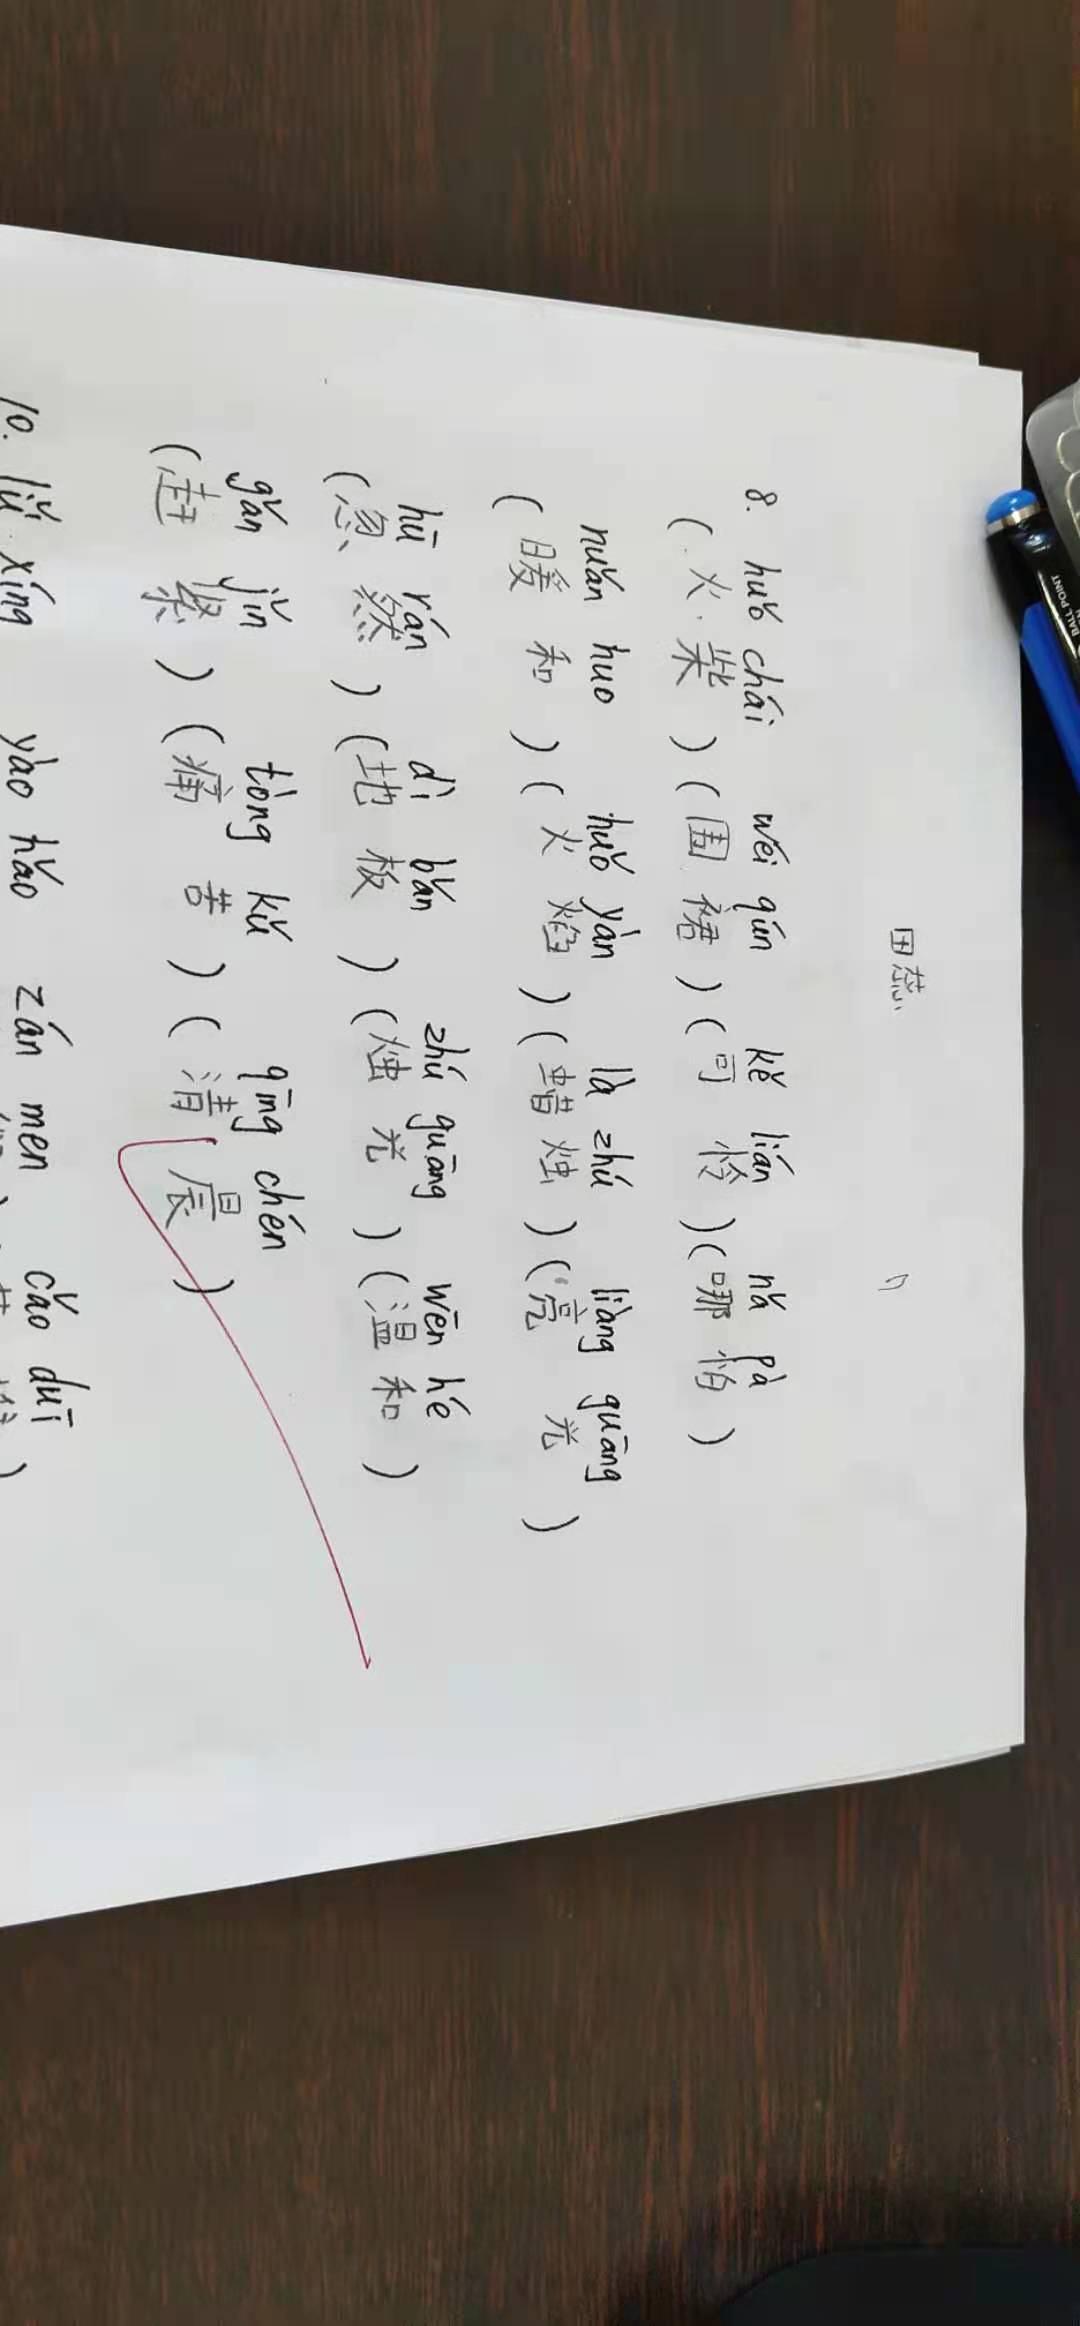 田燕
8. huǒ chái wéi qún kě lián nǎ pà
(火柴)(围裙)(可怜)(哪怕)
nuǎn huo huǒ yàn là zhú liàng guāng
(暖和)(火焰)(蜡烛)(亮光)
hū rán dì bǎn zhú guāng wēn hé
(忽然)(地板)(烛光)(温和)
gǎn jǐn tòng kǔ qīng chén
(赶紧)(痛苦)(清晨)
10. lǚ xíng yào hǎo zán men cǎo duī
BALL POINT